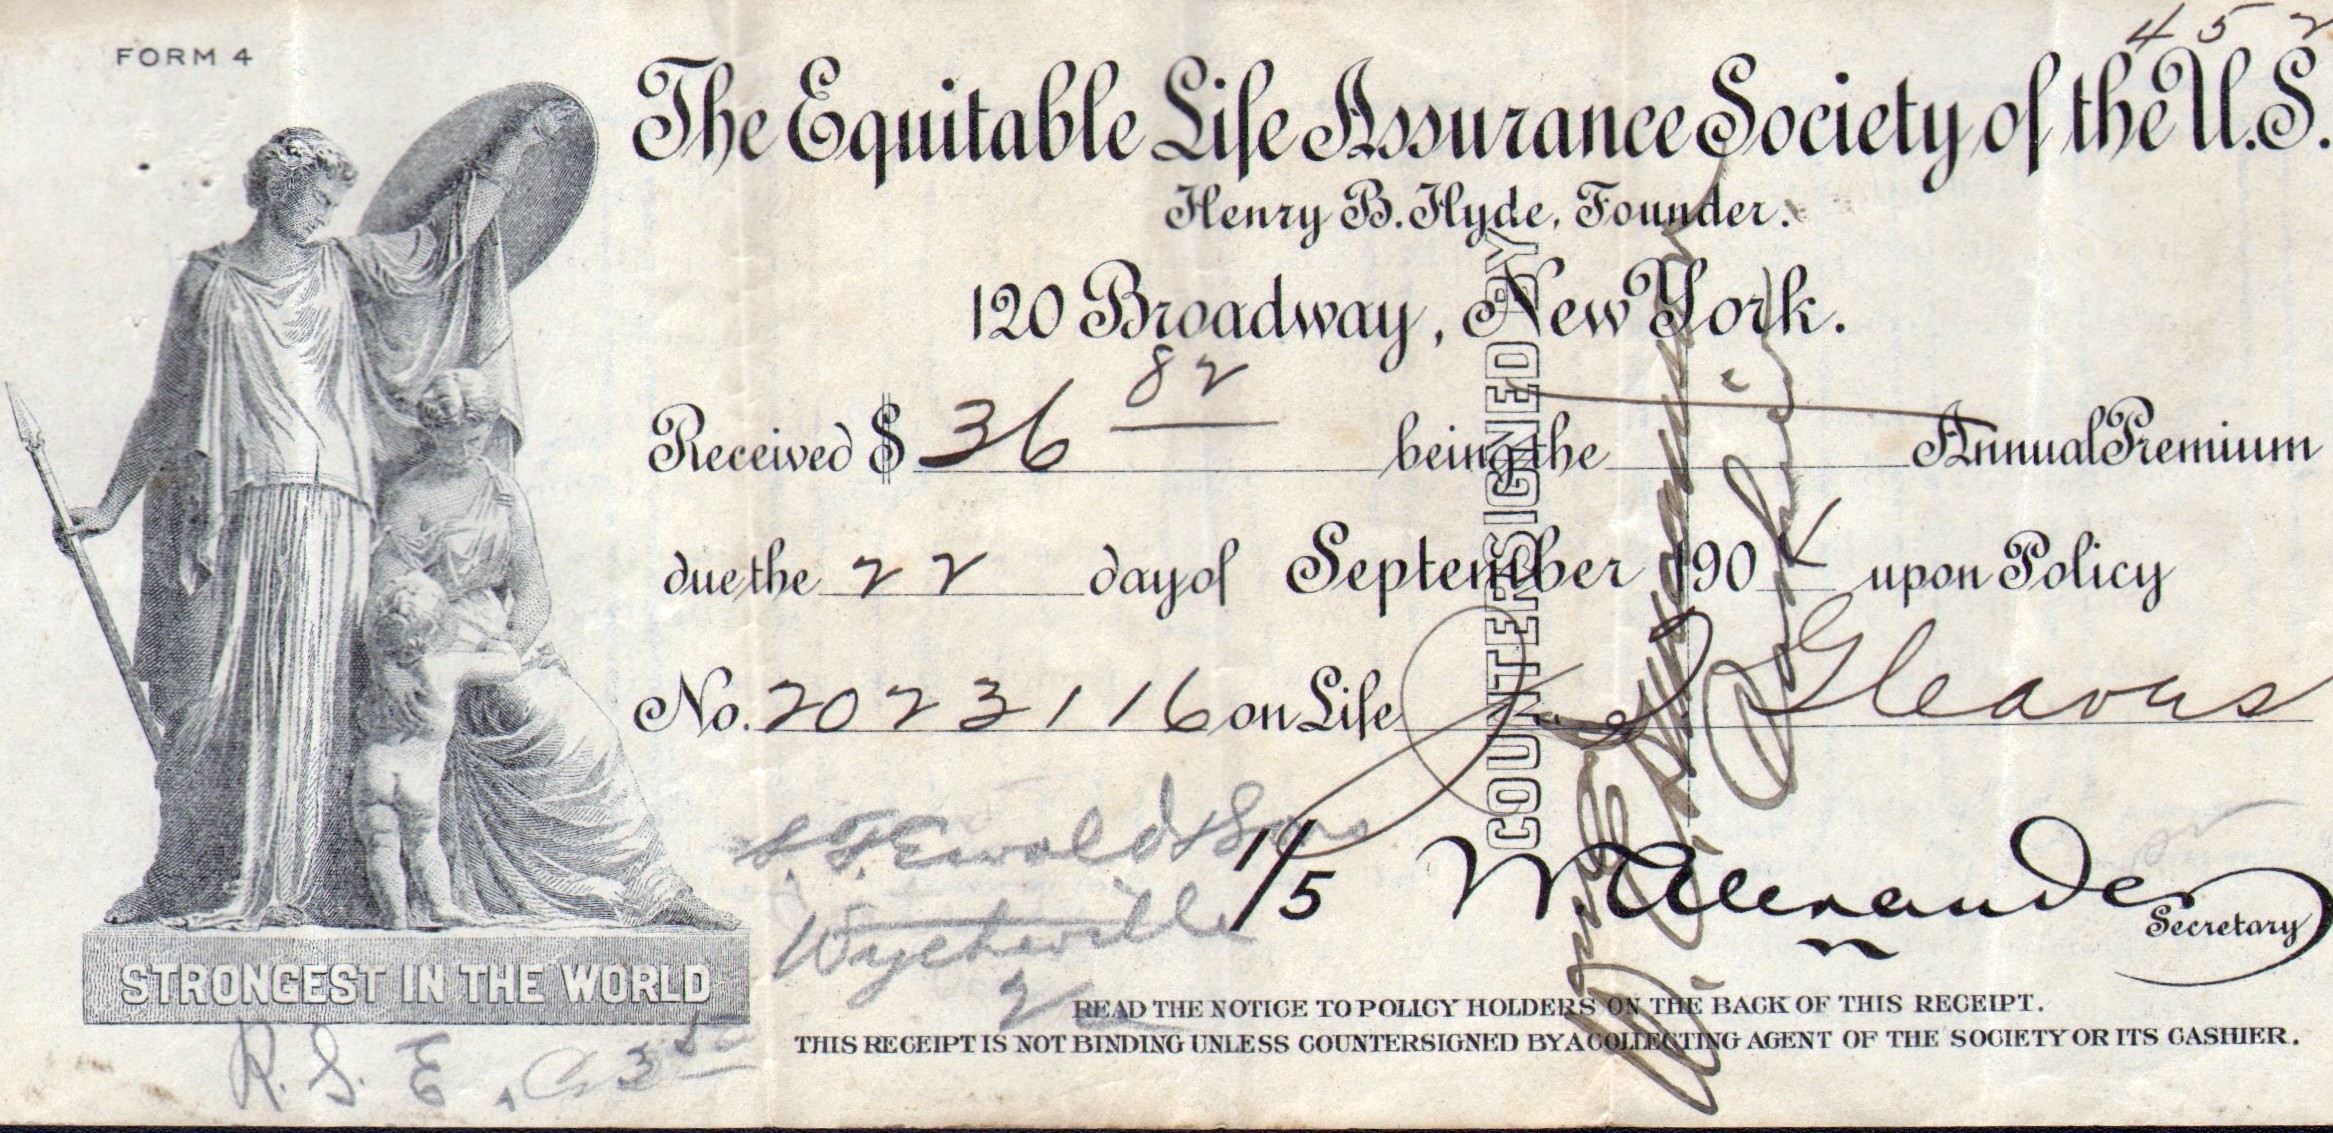 FORM 4
452
The Equitable Life Assurance Society of the U.S.
Henry B. Hyde, Founder.
120 Broadway, New York.
Received $ 36 82 being the Annual Premium
due the 22 day of September 190 upon Policy
No. 2023116 on Life Gleaves
COUNTERSIGNED BY
S. F. Ewald & Sons
Wytheville
1/5
Alexander
Secretary
STRONGEST IN THE WORLD
READ THE NOTICE TO POLICY HOLDERS ON THE BACK OF THIS RECEIPT.
THIS RECEIPT IS NOT BINDING UNLESS COUNTERSIGNED BY A COLLECTING AGENT OF THE SOCIETY OR ITS CASHIER.
R. S. E.